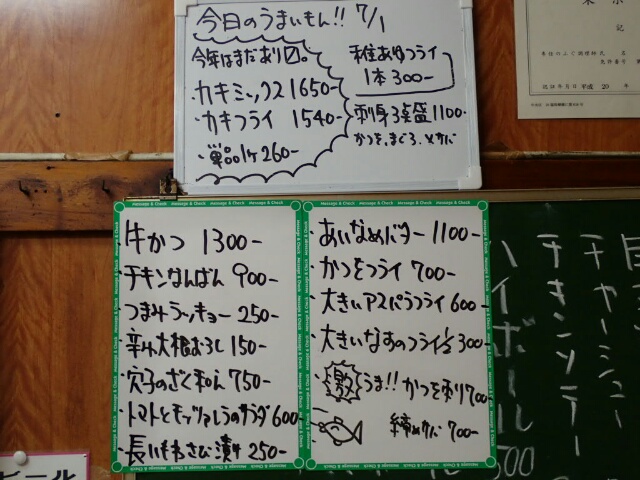 今日のうまいもん!! 7/1
今年はまだあり〼。
・カキミックス 1650-
・カキフライ 1540-
・単品1ケ 260-
稚あゆフライ
1本 300-
刺身3点盛 1100-
かつを、まぐろ、〆サバ
Message & Check
牛かつ 1300-
チキンなんばん 900-
つまみラッキョー 250-
辛み大根おろし 150-
穴子のざく和え 750-
・トマトとモッツァレラのサラダ 600
・長いもわさび漬け 250-
・あいなめバター 1100-
・かつをフライ 700-
・大きいアスパラフライ 600-
・大きいなすのフライ1/2 300-
・激うま!! かつを刺 700
締めサバ 700-
記
氏名
平成 20 年
チャーシュー
チキンソテー
ハイボール 500
ビール